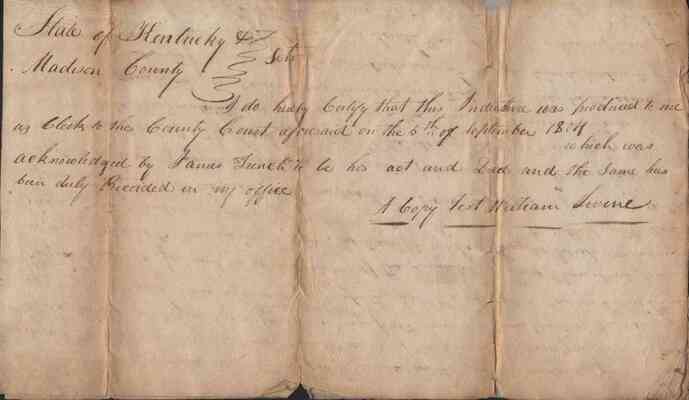 State of Kentucky & Sct
Madison County
I do hereby Certify that this Indenture was produced to me
as Clerk to the County Court aforesaid on the 5th of September 1804
which was
acknowledged by James to be his act and Deed and the same has
been duly Recorded in my office
A Copy Test William Irvine